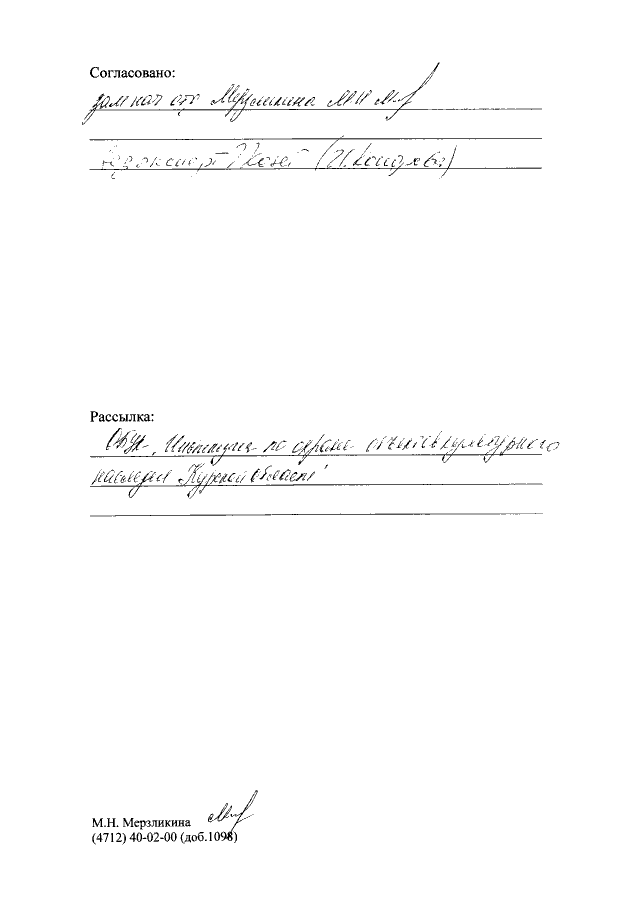 Согласовано:
зам нач отд Мерзликина М Н
Рассылка:
ОБУК "Инспекция по охране объектов культурного
наследия Курской области"
М.Н. Мерзликина
(4712) 40-02-00 (доб.1098)